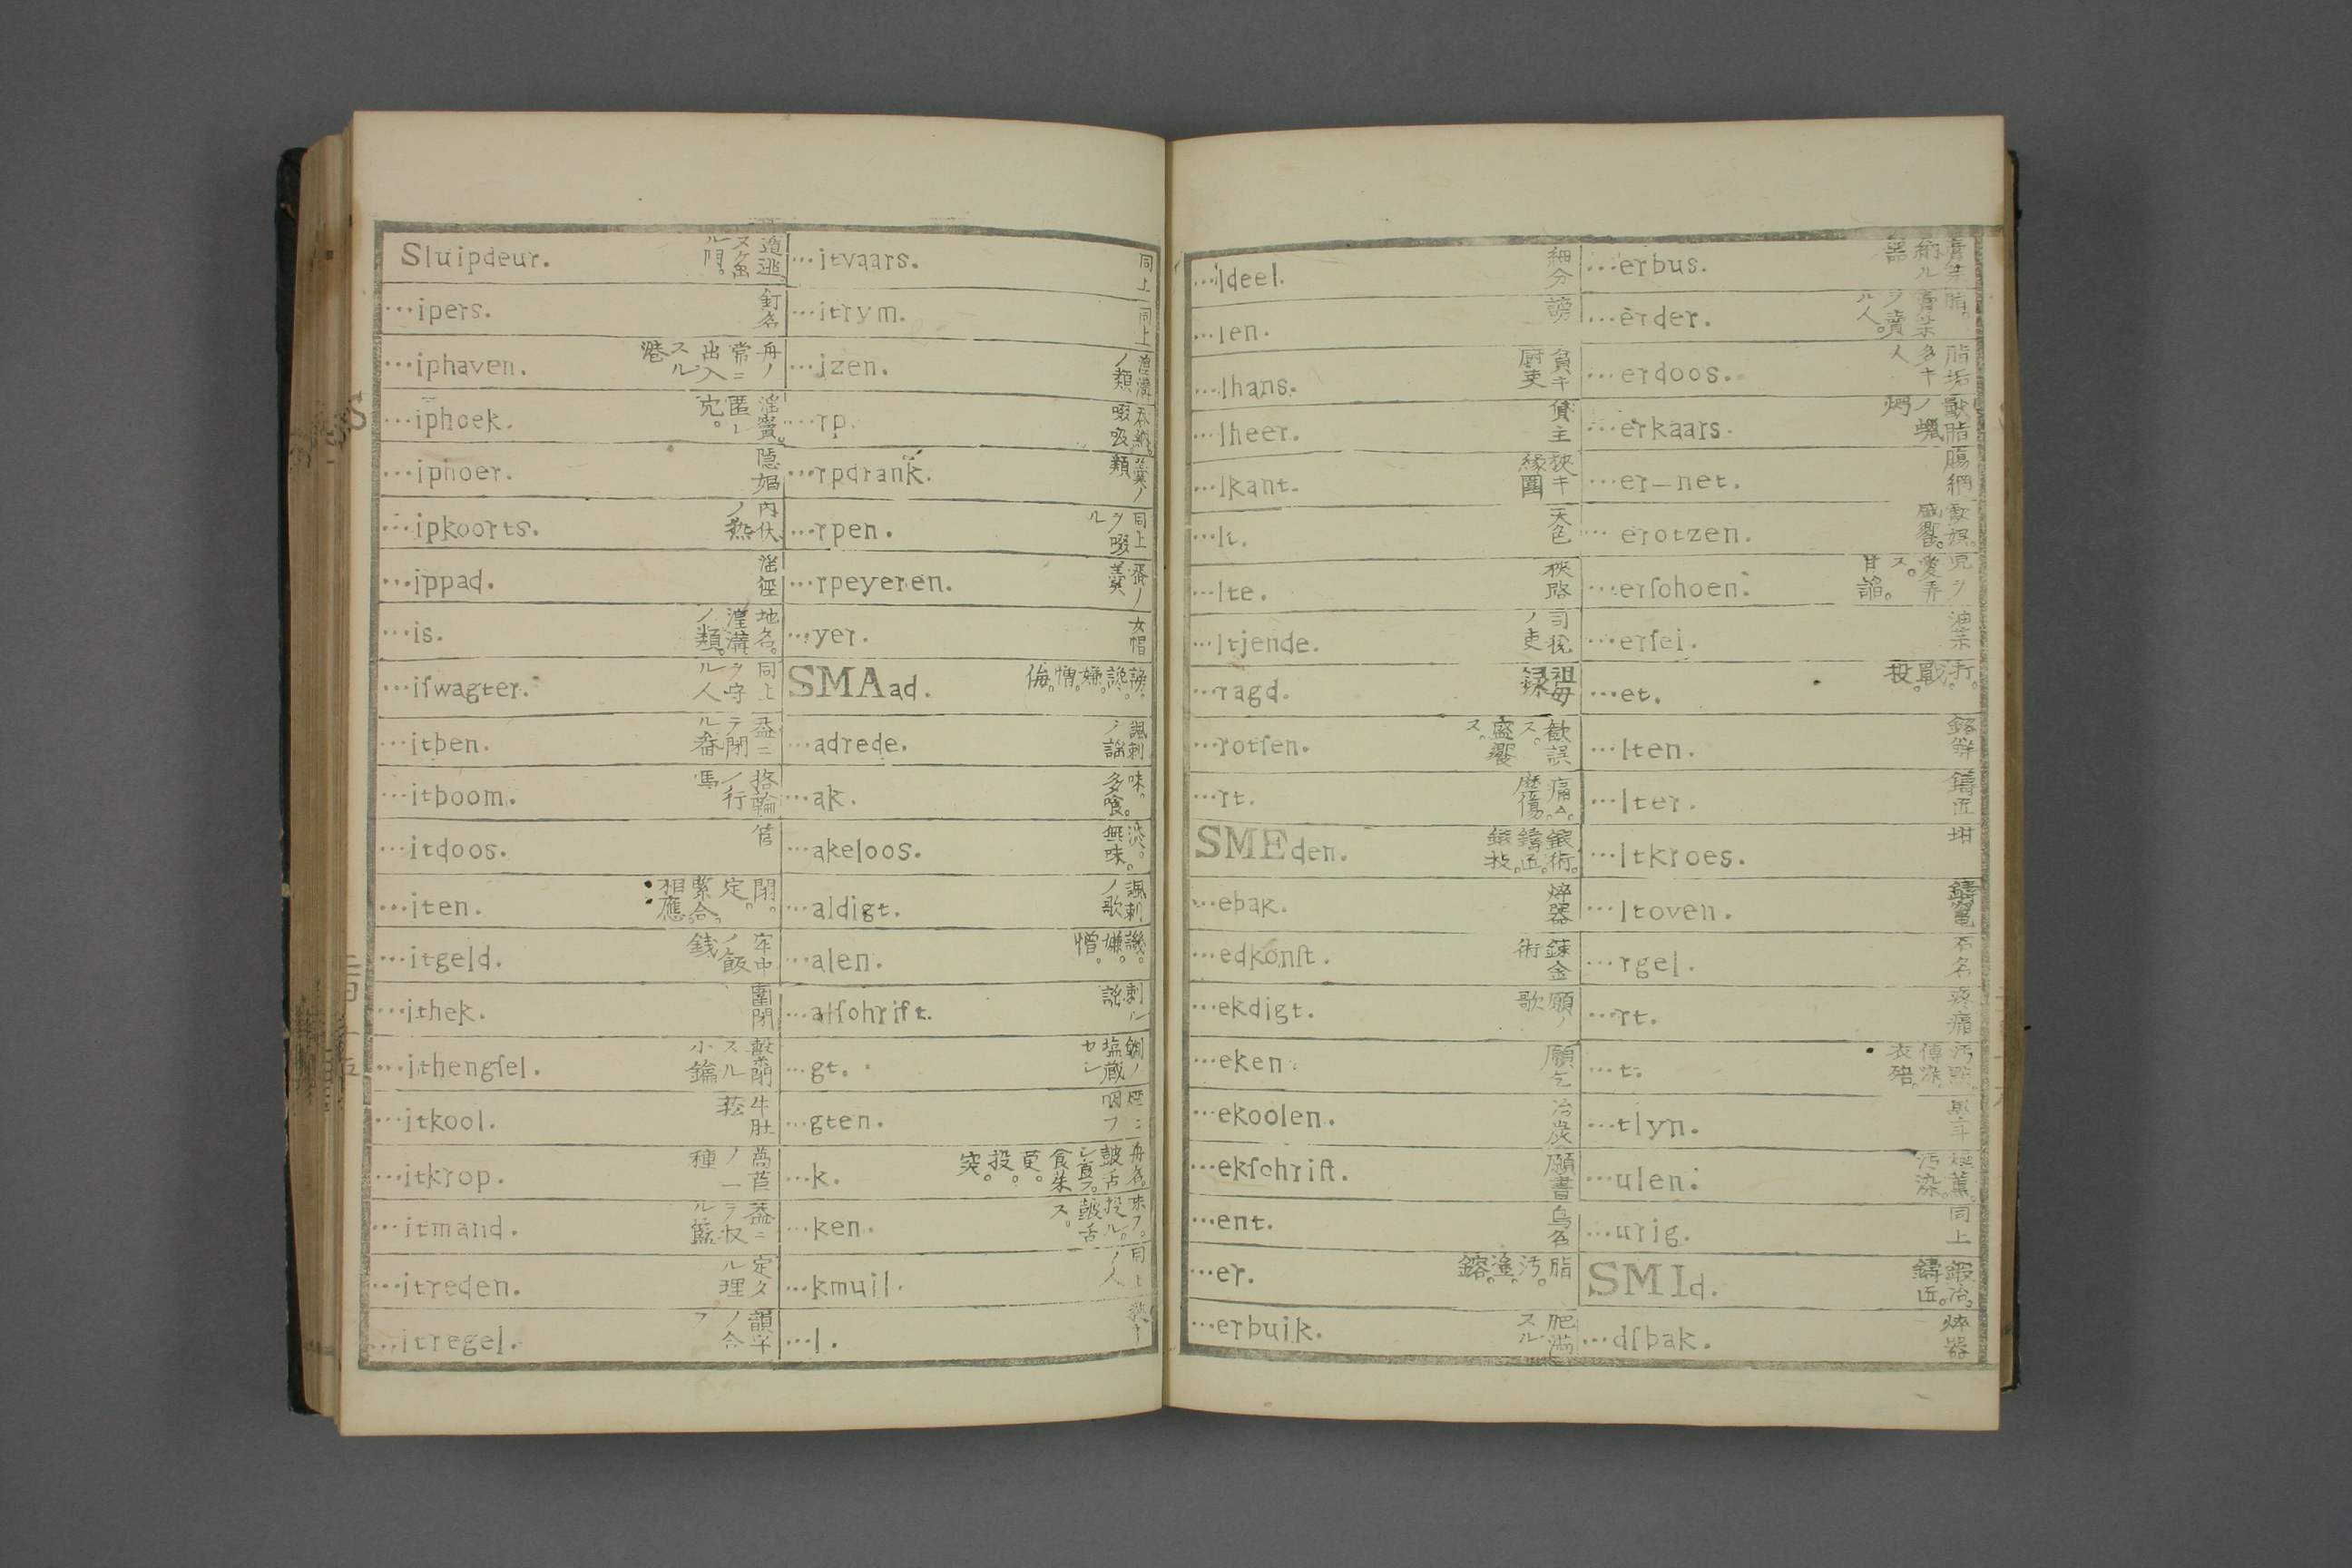 Sluipdeur. 遁逃スル出ル門。
…ipers. 釘名
…iphaven. 舟ノ常ニ出入スル港
…iphoek. 匿レ穴。
…iphoer. 隠娼
…ipkoorts. 内伏ノ熱
…ippad. 淫徑
…is. 地名。湟溝ノ類。
…iſwagter. 同上ヲ守ル人
…itben. 蓋ニテ閉ル畚
…itboom.
…itdoos. 筥
…iten. 閉。定。緊合。相應
…itgeld. 牢中ノ飯銭
…ithek. 圍閉
…ithengſel. 小鑰
…itkool. 牛肚菘
…itkrop. 萵苣ノ一種
…itmand. 蓋ニテ収ル籃
…itreden. 定タル理
…itregel. 韻字ノ合フ
…itvaars. 同上
…itrym. 同上
…izen. 湟溝ノ類
…rp. 啜吸
…rpdrank. 羹ノ類
…rpen. 同上ヲ啜ル
…rpeyeren. 蛋ノ羹
…yer. 女帽
SMAad. 謗。讒。嫌。憎。侮。
…adrede. 諷刺ノ謡
…ak. 味。多喰。
…akeloos. 淡。無味。
…aldigt. 諷刺ノ歌
…alen. 譏。嫌。憎。
…alſohrift. 刺ル謡
…gt.
…gten.
…k. 舟名。鼓舌シ食フ。投。突。
…ken. 投ル。鼓舌ス。
…kmuil. 同上ノ人
…l. 狭キ
…ldeel. 細分
…len. 謗
…lhans. 貧キ厨吏
…lheer. 貸主
…lkant. 狭キ縁圍
…lt. 天色
…lte. 狭路
…ltjende. 司税ノ吏
…ragd. 祖母緑
…rotſen. 歓誤ス。盛饗ス。
…rt. 痛。
SMEden. 鍛術。鑄匠。鍛投。
…ebak. 焠器
…edkonſt. 錬金術
…ekdigt. 願ノ歌
…eken. 願乞
…ekoolen. 冶炭
…ekſchrift. 願書
…ent. 鳥名
…er. 脂。汚。塗。鎔。
…erbuik. 肥満スル
…erbus. 膏薬納ル器
…erder. 脂。膏薬ヲ賣ル人。
…erdoos. 脂垢多キ人
…erkaars. 獸脂ノ蠟燭
…er—net. 腸網
…erotzen. 歓娯。盛饗。
…erſohoen. 児ヲ愛弄ス。甘謟。
…erſei. 油菜
…et. 打。戰。投。
…lten. 鎔銷
…lter. 鑄匠
…ltkroes. 坩
…ltoven. 鑄竈
…rgel. 石名
…rt. 疼痛
…t. 汚點。傳染。
…tlyn.
…ulen. 煙薫。汚染。
…urig. 同上
SMId. 鍛冶。鑄匠。
…dſbak. 焠器